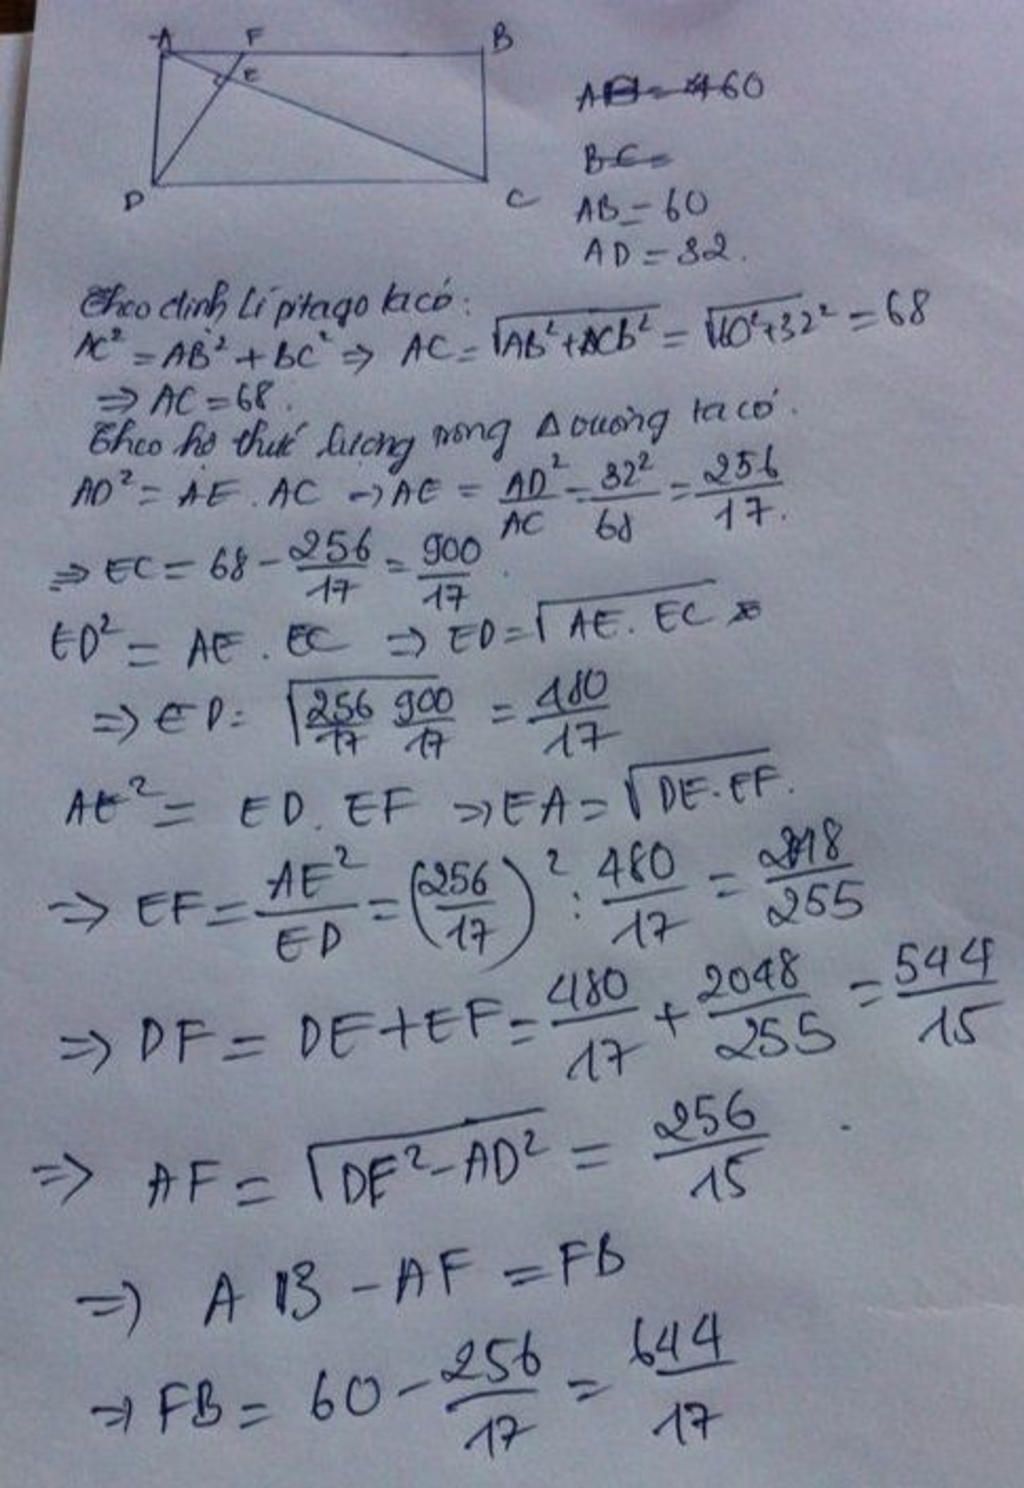 A F B
E
D C
AB = 460
BC =
AB = 60
AD = 32.
Theo định lí pitago ta có:
AC² = AB² + BC² ⇒ AC = √(AB² + CB²) = √(60² + 32²) = 68
⇒ AC = 68.
Theo hệ thức lượng trong Δ vuông ta có.
AD² = AE . AC → AE = AD²/AC = 32²/68 = 256/17.
⇒ EC = 68 - 256/17 = 900/17.
ED² = AE . EC ⇒ ED = √(AE . EC)
⇒ ED = √(256/17 900/17) = 480/17
AE² = ED . EF ⇒ EA = √(DE . EF).
⇒ EF = AE²/ED = (256/17)² : 480/17 = 2048/255
⇒ DF = DE + EF = 480/17 + 2048/255 = 544/15
⇒ AF = √(DF² - AD²) = 256/15
⇒ AB - AF = FB
⇒ FB = 60 - 256/17 = 644/17